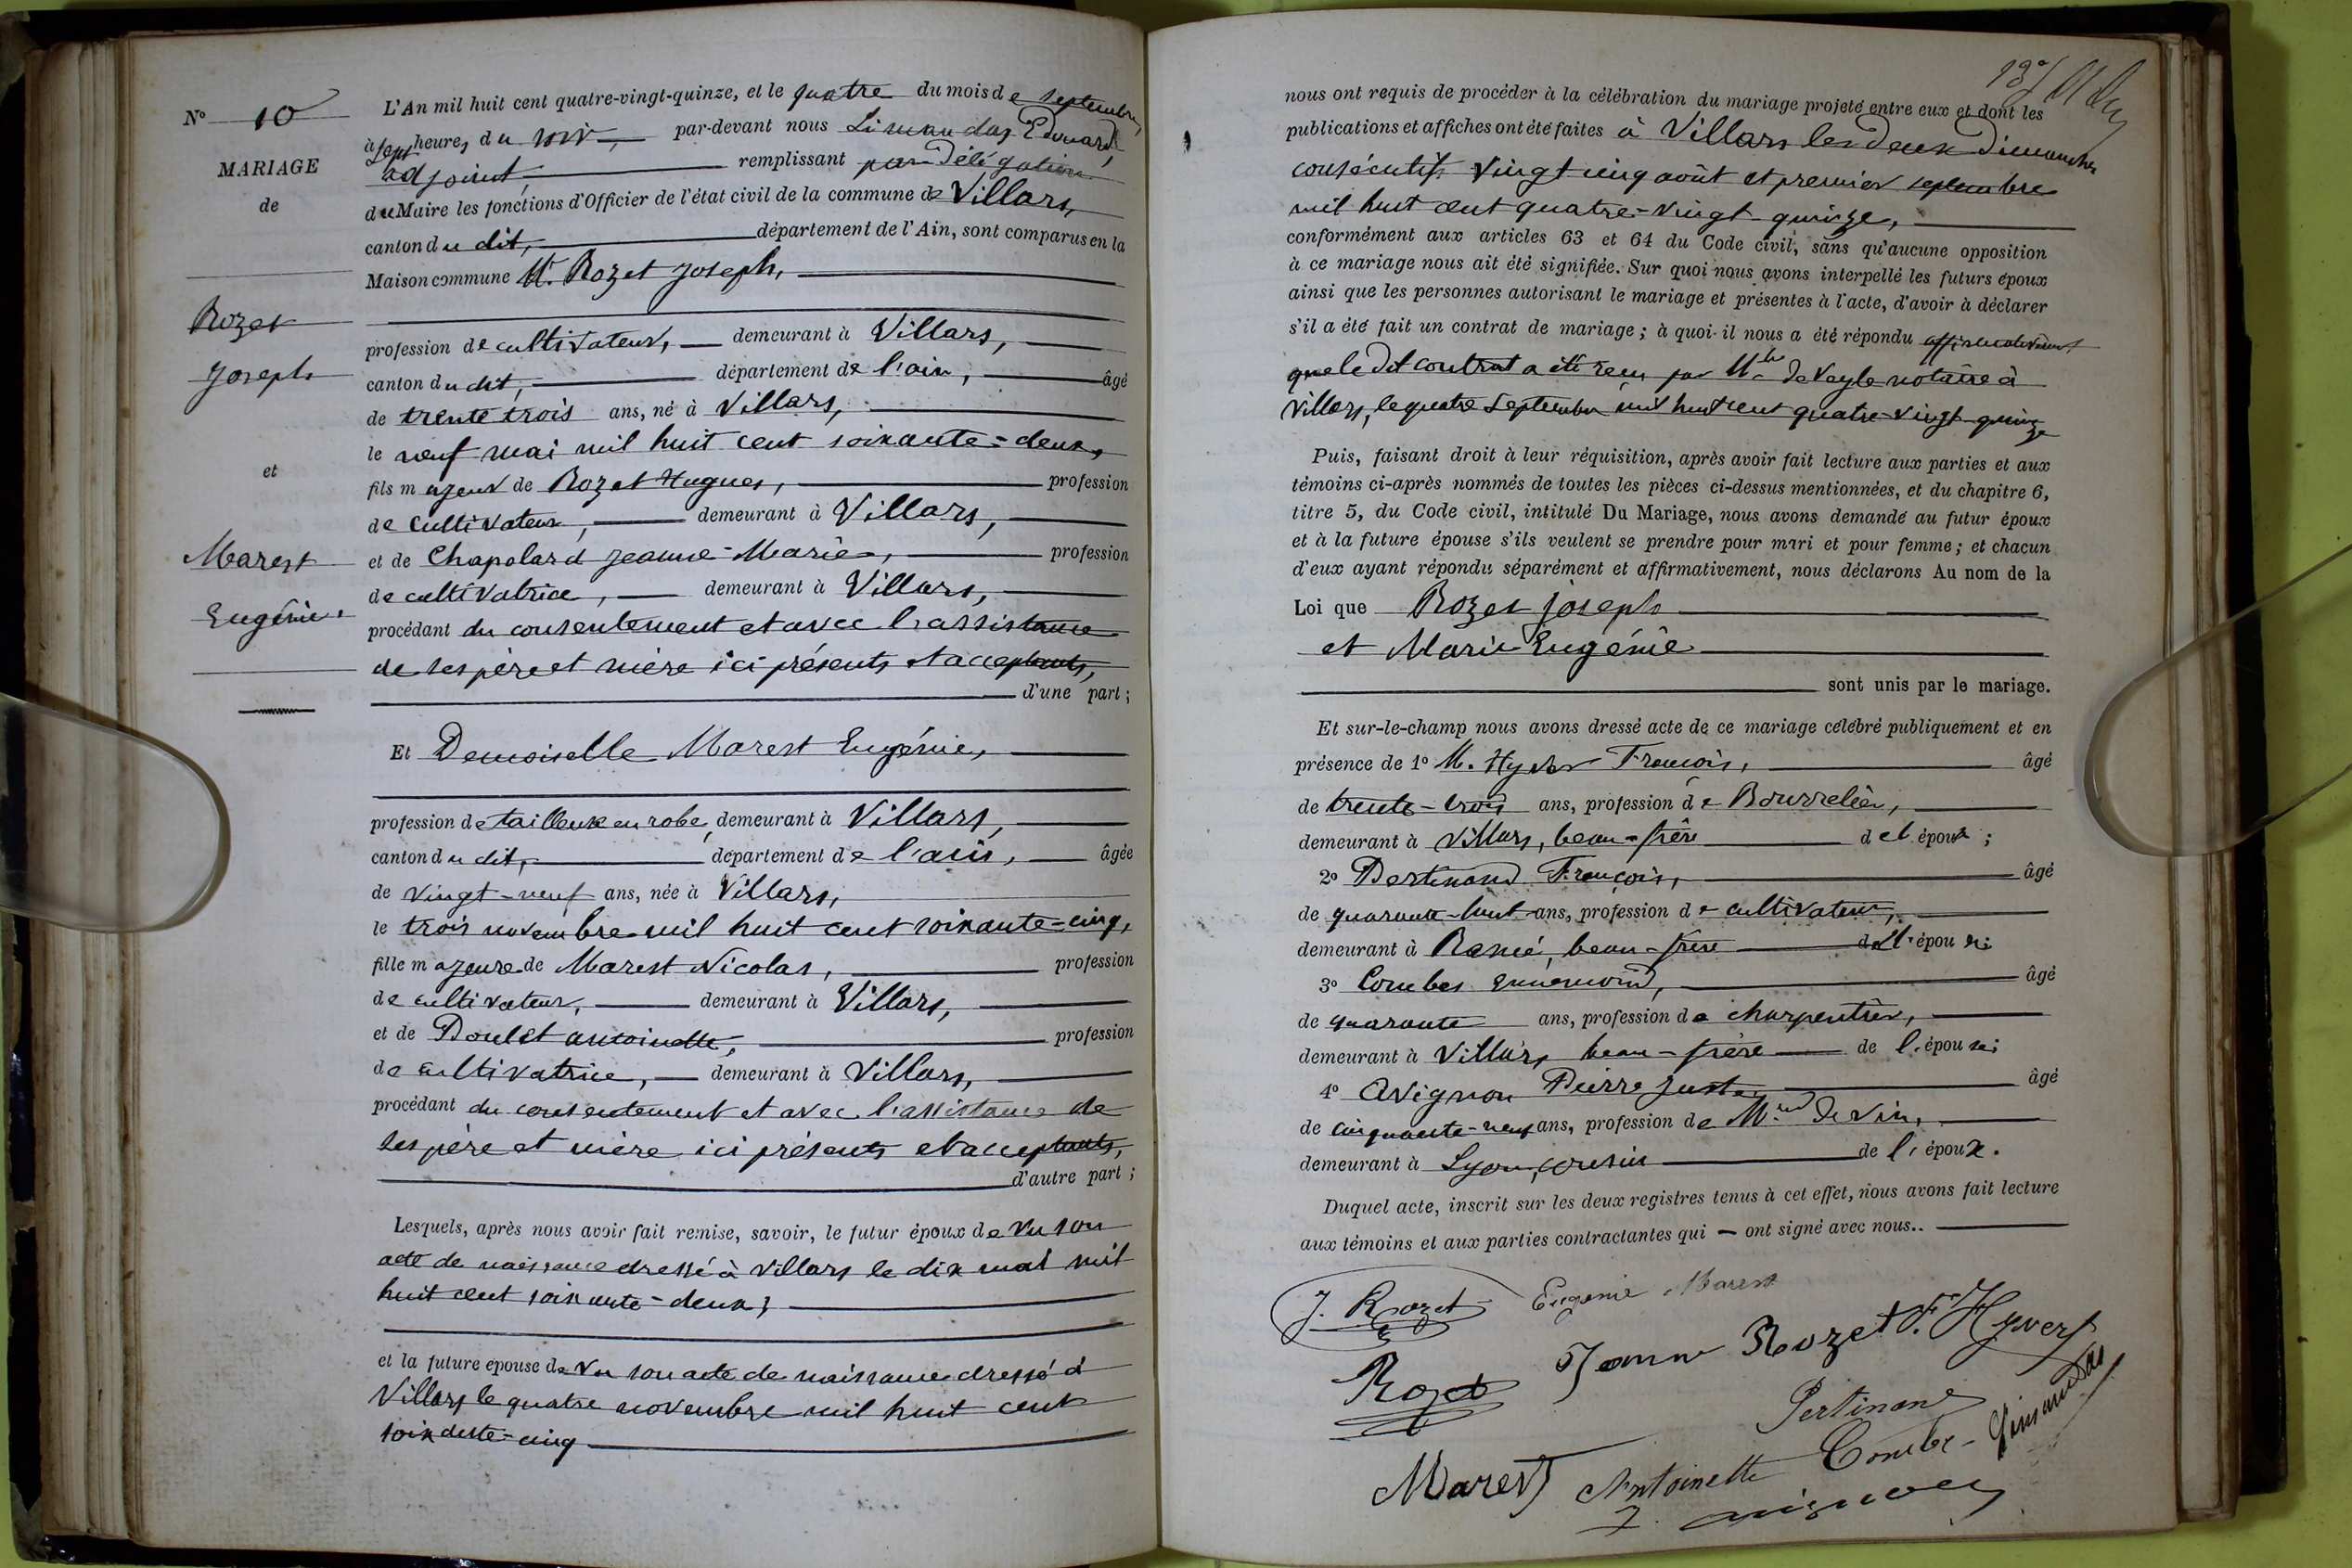 N° 10
MARIAGE
de
Rozet
Joseph
et
Marest
Eugénie.
L'An mil huit cent quatre-vingt-quinze, et le quatre du mois de septembre,
à sept heures du soir, par-devant nous Limandas Edouard,
adjoint, remplissant par délégation
du Maire les fonctions d'Officier de l'état civil de la commune de Villars,
canton du dit, département de l'Ain, sont comparus en la
Maison commune M. Rozet Joseph,
profession de cultivateur, demeurant à Villars,
canton du dit, département de l'ain, âgé
de trente trois ans, né à Villars,
le neuf mai mil huit cent soixante-deux,
fils majeur de Rozet Hugues, profession
de cultivateur, demeurant à Villars,
et de Chapolard Jeanne-Marie, profession
de cultivatrice, demeurant à Villars,
procédant du consentement et avec l'assistance
de ses père et mère ici présents et acceptants,
d'une part;
Et Demoiselle Marest Eugénie,
profession de tailleuse en robe, demeurant à Villars,
canton du dit, département de l'ain, âgée
de vingt-neuf ans, née à Villars,
le trois novembre mil huit cent soixante-cinq,
fille majeure de Marest Nicolas, profession
de cultivateur, demeurant à Villars,
et de Doulet antoinette, profession
de cultivatrice, demeurant à Villars,
procédant du consentement et avec l'assistance de
ses père et mère ici présents et acceptants,
d'autre part;
Lesquels, après nous avoir fait remise, savoir, le futur époux de Vu son
acte de naissance dressé à Villars le dix mai mil
huit cent soixante-deux;
et la future épouse de Vu son acte de naissance dressé à
Villars le quatre novembre mil huit cent
soixante-cinq
nous ont requis de procéder à la célébration du mariage projeté entre eux et dont les
publications et affiches ont été faites à Villars les deux Dimanches
consécutifs vingt cinq août et premier septembre
mil huit cent quatre-vingt-quinze,
conformément aux articles 63 et 64 du Code civil, sans qu'aucune opposition
à ce mariage nous ait été signifiée. Sur quoi nous avons interpellé les futurs époux
ainsi que les personnes autorisant le mariage et présentes à l'acte, d'avoir à déclarer
s'il a été fait un contrat de mariage; à quoi il nous a été répondu affirmativement
que le dit contrat a été reçu par Me de Veyle notaire à
Villars, le quatre Septembre mil huit cent quatre-vingt-quinze
Puis, faisant droit à leur réquisition, après avoir fait lecture aux parties et aux
témoins ci-après nommés de toutes les pièces ci-dessus mentionnées, et du chapitre 6,
titre 5, du Code civil, intitulé Du Mariage, nous avons demandé au futur époux
et à la future épouse s'ils veulent se prendre pour mari et pour femme; et chacun
d'eux ayant répondu séparément et affirmativement, nous déclarons Au nom de la
Loi que Rozet Joseph
et Marie Eugénie
sont unis par le mariage.
Et sur-le-champ nous avons dressé acte de ce mariage célébré publiquement et en
présence de 1° M. Hyvers François, âgé
de trente-trois ans, profession de Bourrelier,
demeurant à Villars, beau-frère de l'époux;
2° Pertinand François, âgé
de quarante-huit ans, profession de cultivateur,
demeurant à Rancé, beau-frère de l'épouse;
3° Combes Ennemond, âgé
de quarante ans, profession de charpentier,
demeurant à Villars, beau-frère de l'épouse;
4° Avignon Pierre Juste, âgé
de cinquante-neuf ans, profession de Md de vin,
demeurant à Lyon, cousin de l'époux.
Duquel acte, inscrit sur les deux registres tenus à cet effet, nous avons fait lecture
aux témoins et aux parties contractantes qui — ont signé avec nous..
J. Rozet Eugénie Marest
Rozet Jeanne Rozet F. Hyvers
Pertinand
Marest Antoinette Combe Limandas
J. avignon